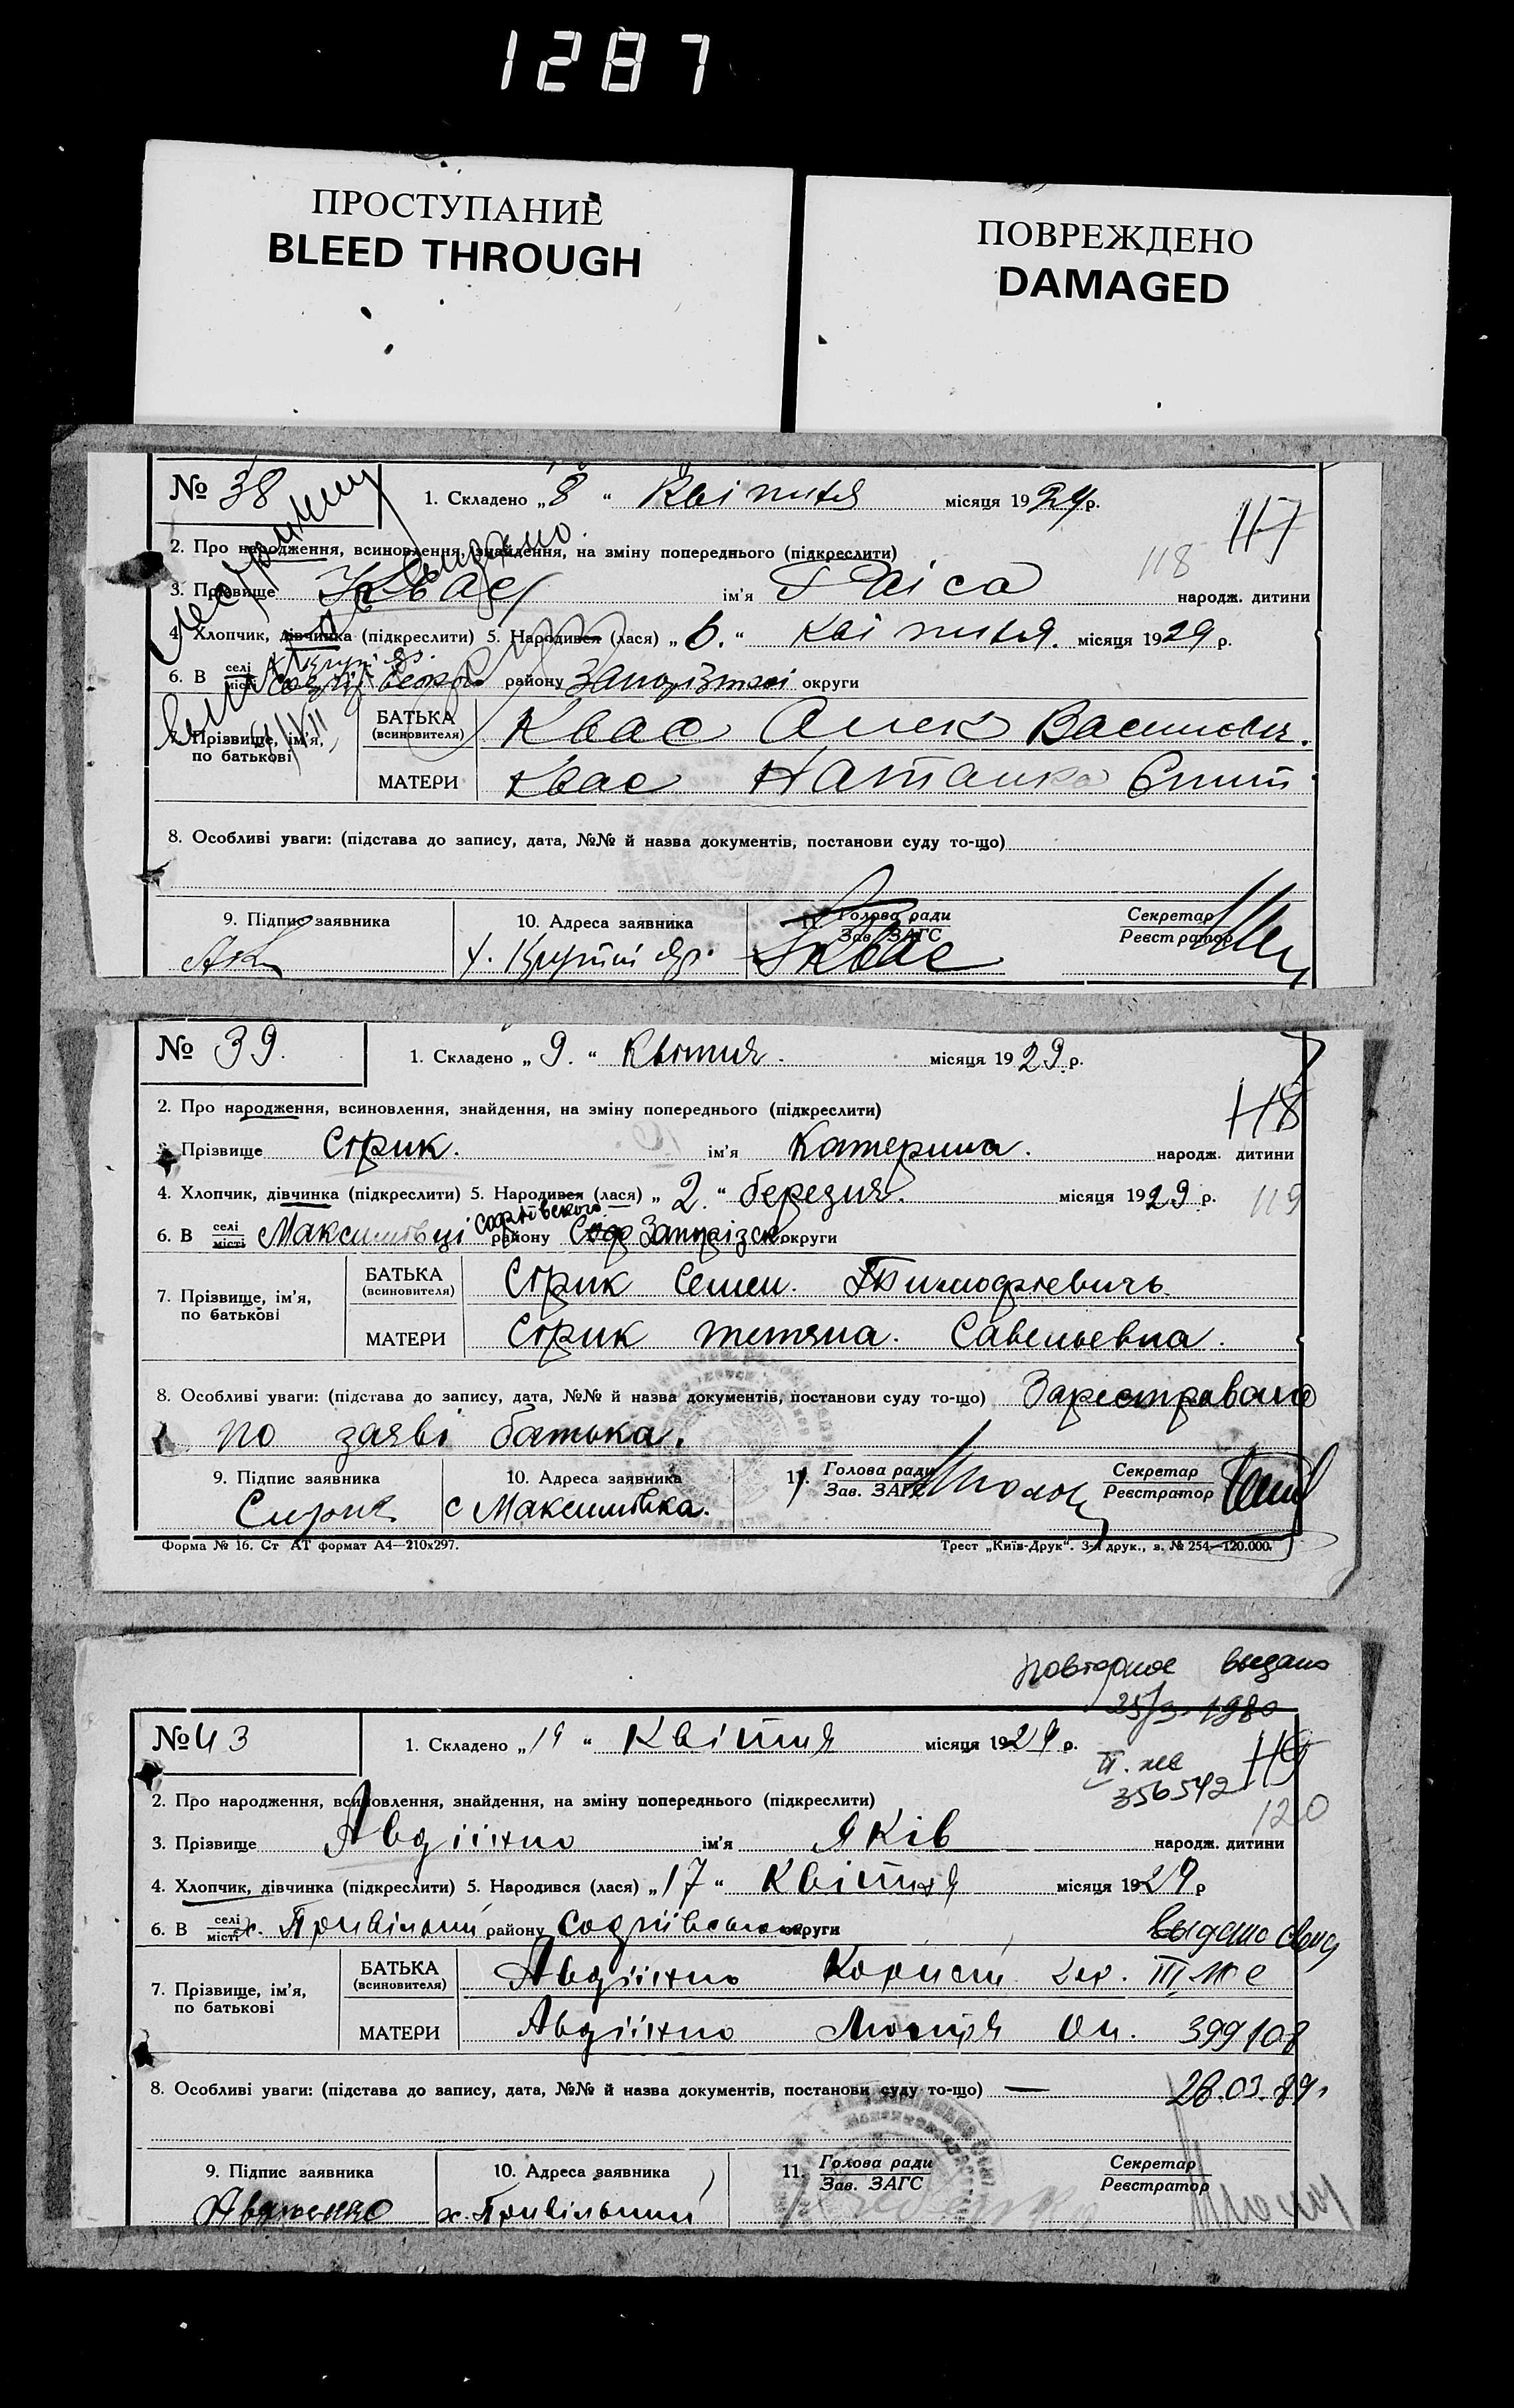 1287
ПРОСТУПАНИЕ
BLEED THROUGH
ПОВРЕЖДЕНО
DAMAGED
№ 38
1. Складено „8“ Квітня місяця 1929 р.
117
2. Про народження, всиновлення, знайдення, на зміну попереднього (підкреслити)
118
3. Прізвище Квас ім'я Раіса народж. дитини
4. Хлопчик, дівчинка (підкреслити) 5. Народився (лася) „6.“ Квітня. місяця 1929 р.
6. В селі місті району Запорізької округи
7. Прізвище, ім'я, по батькові
БАТЬКА (всиновителя) Квас Алек Васильов.
МАТЕРИ Квас Наталка
8. Особливі уваги: (підстава до запису, дата, №№ й назва документів, постанови суду то-що)
9. Підпис заявника
10. Адреса заявника
11. Голова ради Зав. ЗАГС
Секретар Реєстратор
х. Крутий Яр. Квас
№ 39.
1. Складено „9.“ Квітня. місяця 1929 р.
2. Про народження, всиновлення, знайдення, на зміну попереднього (підкреслити)
118
3. Прізвище Стрик. ім'я Катерина. народж. дитини
4. Хлопчик, дівчинка (підкреслити) 5. Народився (лася) „2.“ березня. місяця 1929 р.
119
6. В селі місті Максимівці Софіівського району Соф Запорізск округи
7. Прізвище, ім'я, по батькові
БАТЬКА (всиновителя) Стрик Семен. Тимофієвичь.
МАТЕРИ Стрик тетяна. Савельевна.
8. Особливі уваги: (підстава до запису, дата, №№ й назва документів, постанови суду то-що) Зарєстровано
по заяві батька.
9. Підпис заявника
10. Адреса заявника
11. Голова ради Зав. ЗАГС
Секретар Реєстратор
с Максимівка.
Форма № 16. Ст АТ формат А4—210х297.
Трест „Київ-Друк“. 3-я друк., з. № 254—120.000.
Повторное выдано
25/3-1980
№ 43
1. Складено „19“ Квітня місяця 1929 р.
II. ЖС
356542
119
2. Про народження, всиновлення, знайдення, на зміну попереднього (підкреслити)
120
3. Прізвище Авдіінко ім'я Яків народж. дитини
4. Хлопчик, дівчинка (підкреслити) 5. Народився (лася) „17“ Квітня місяця 1929 р
6. В селі місті х. Привільний району Софіівського округи
выдано свид
7. Прізвище, ім'я, по батькові
БАТЬКА (всиновителя) Авдіінко Корній
III ЖС
МАТЕРИ Авдіінко
399108
8. Особливі уваги: (підстава до запису, дата, №№ й назва документів, постанови суду то-що) —
28.03.89
9. Підпис заявника
10. Адреса заявника
11. Голова ради Зав. ЗАГС
Секретар Реєстратор
х. Привільний